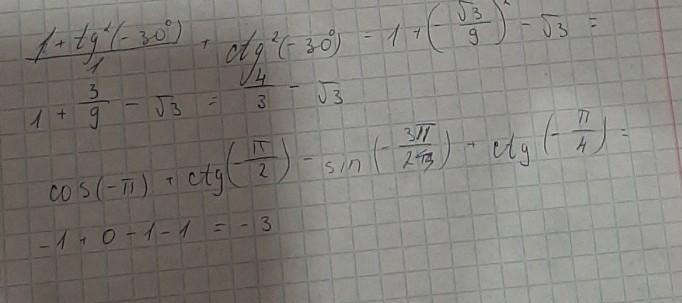 (1 + tg²(-30°))/1 + ctg²(-30°) = 1 + (-√3/9)² - √3 =
1 + 3/9 - √3 = 4/3 - √3
cos(-π) + ctg(-π/2) - sin(-3π/2) + ctg(-π/4) =
-1 + 0 - 1 - 1 = -3